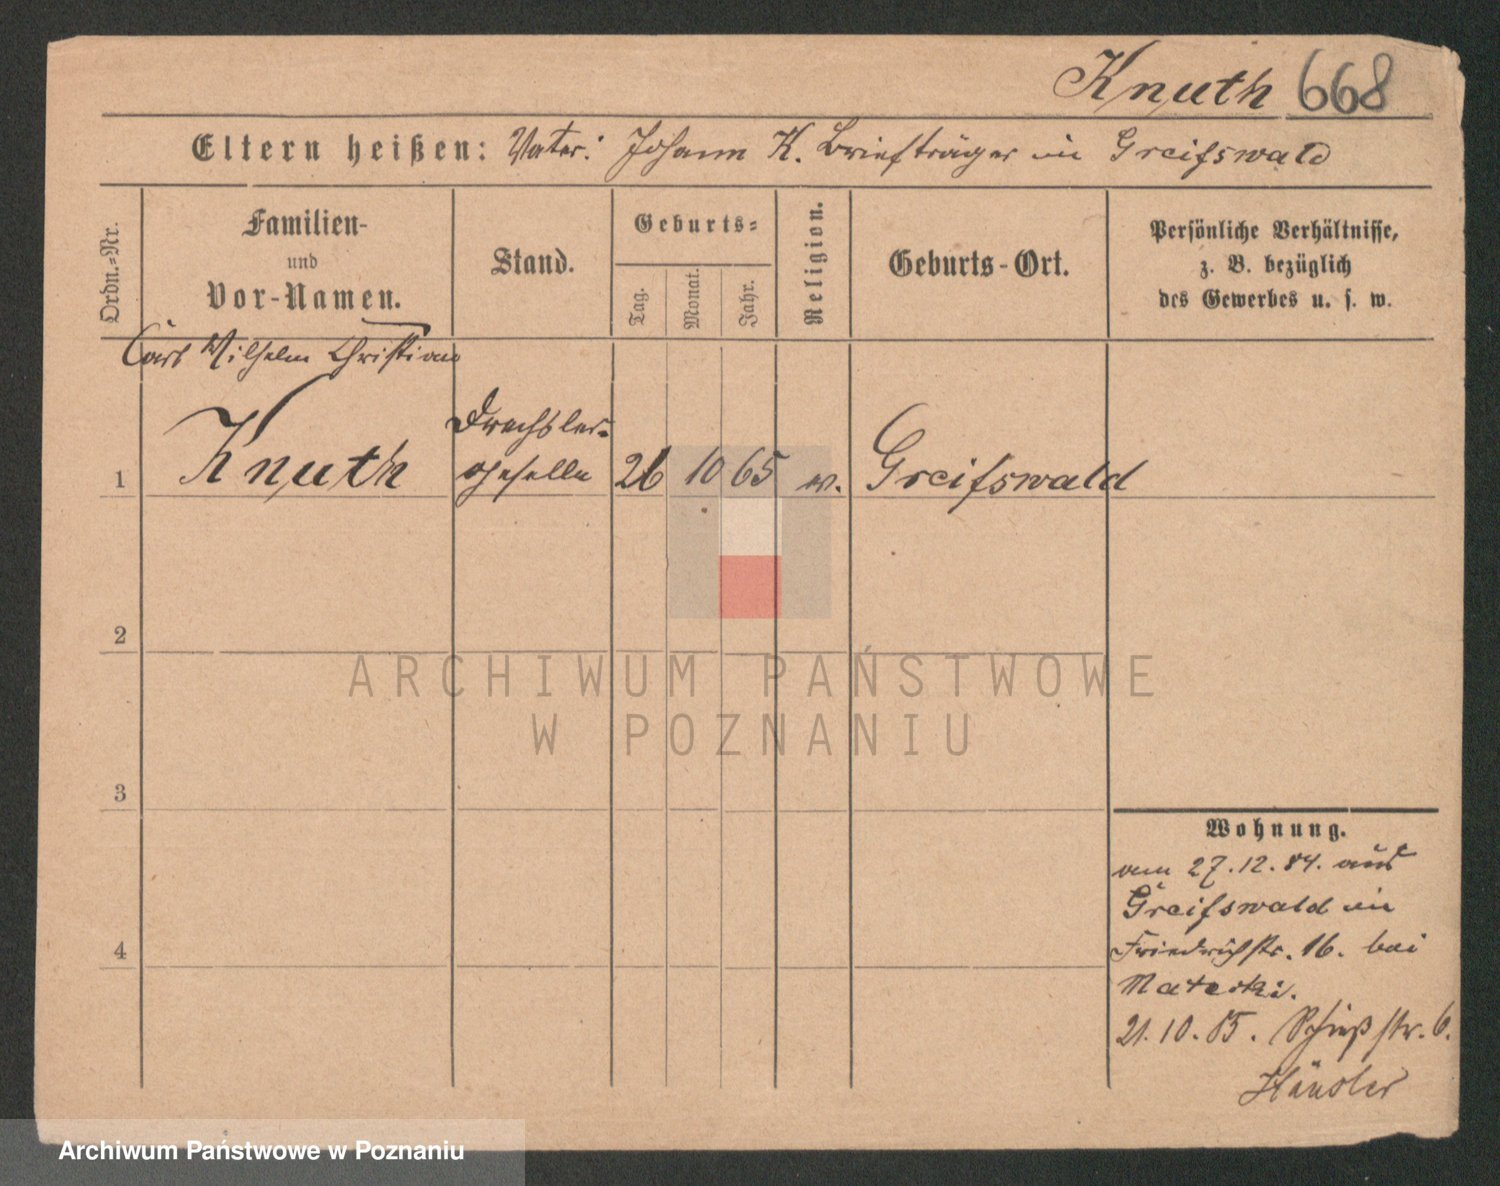 Knuth 668
Eltern heißen: Vater: Johann K. Briefträger in Greifswald
Ordn.-Nr.
Familien-
und
Vor-Namen.
Stand.
Geburts-
Tag.
Monat.
Jahr.
Religion.
Geburts-Ort.
Persönliche Verhältnisse,
z. B. bezüglich
des Gewerbes u. s. w.
Carl Wilhelm Christian
Drechsler-
1 Knuth geselle 26 10 65 ev. Greifswald
2
ARCHIWUM PAŃSTWOWE
W POZNANIU
3
Wohnung.
am 27.12.84. aus
Greifswald in
4
Friedrichstr. 16. bei
21.10.85. Schießstr. 6.
Häusler
Archiwum Państwowe w Poznaniu